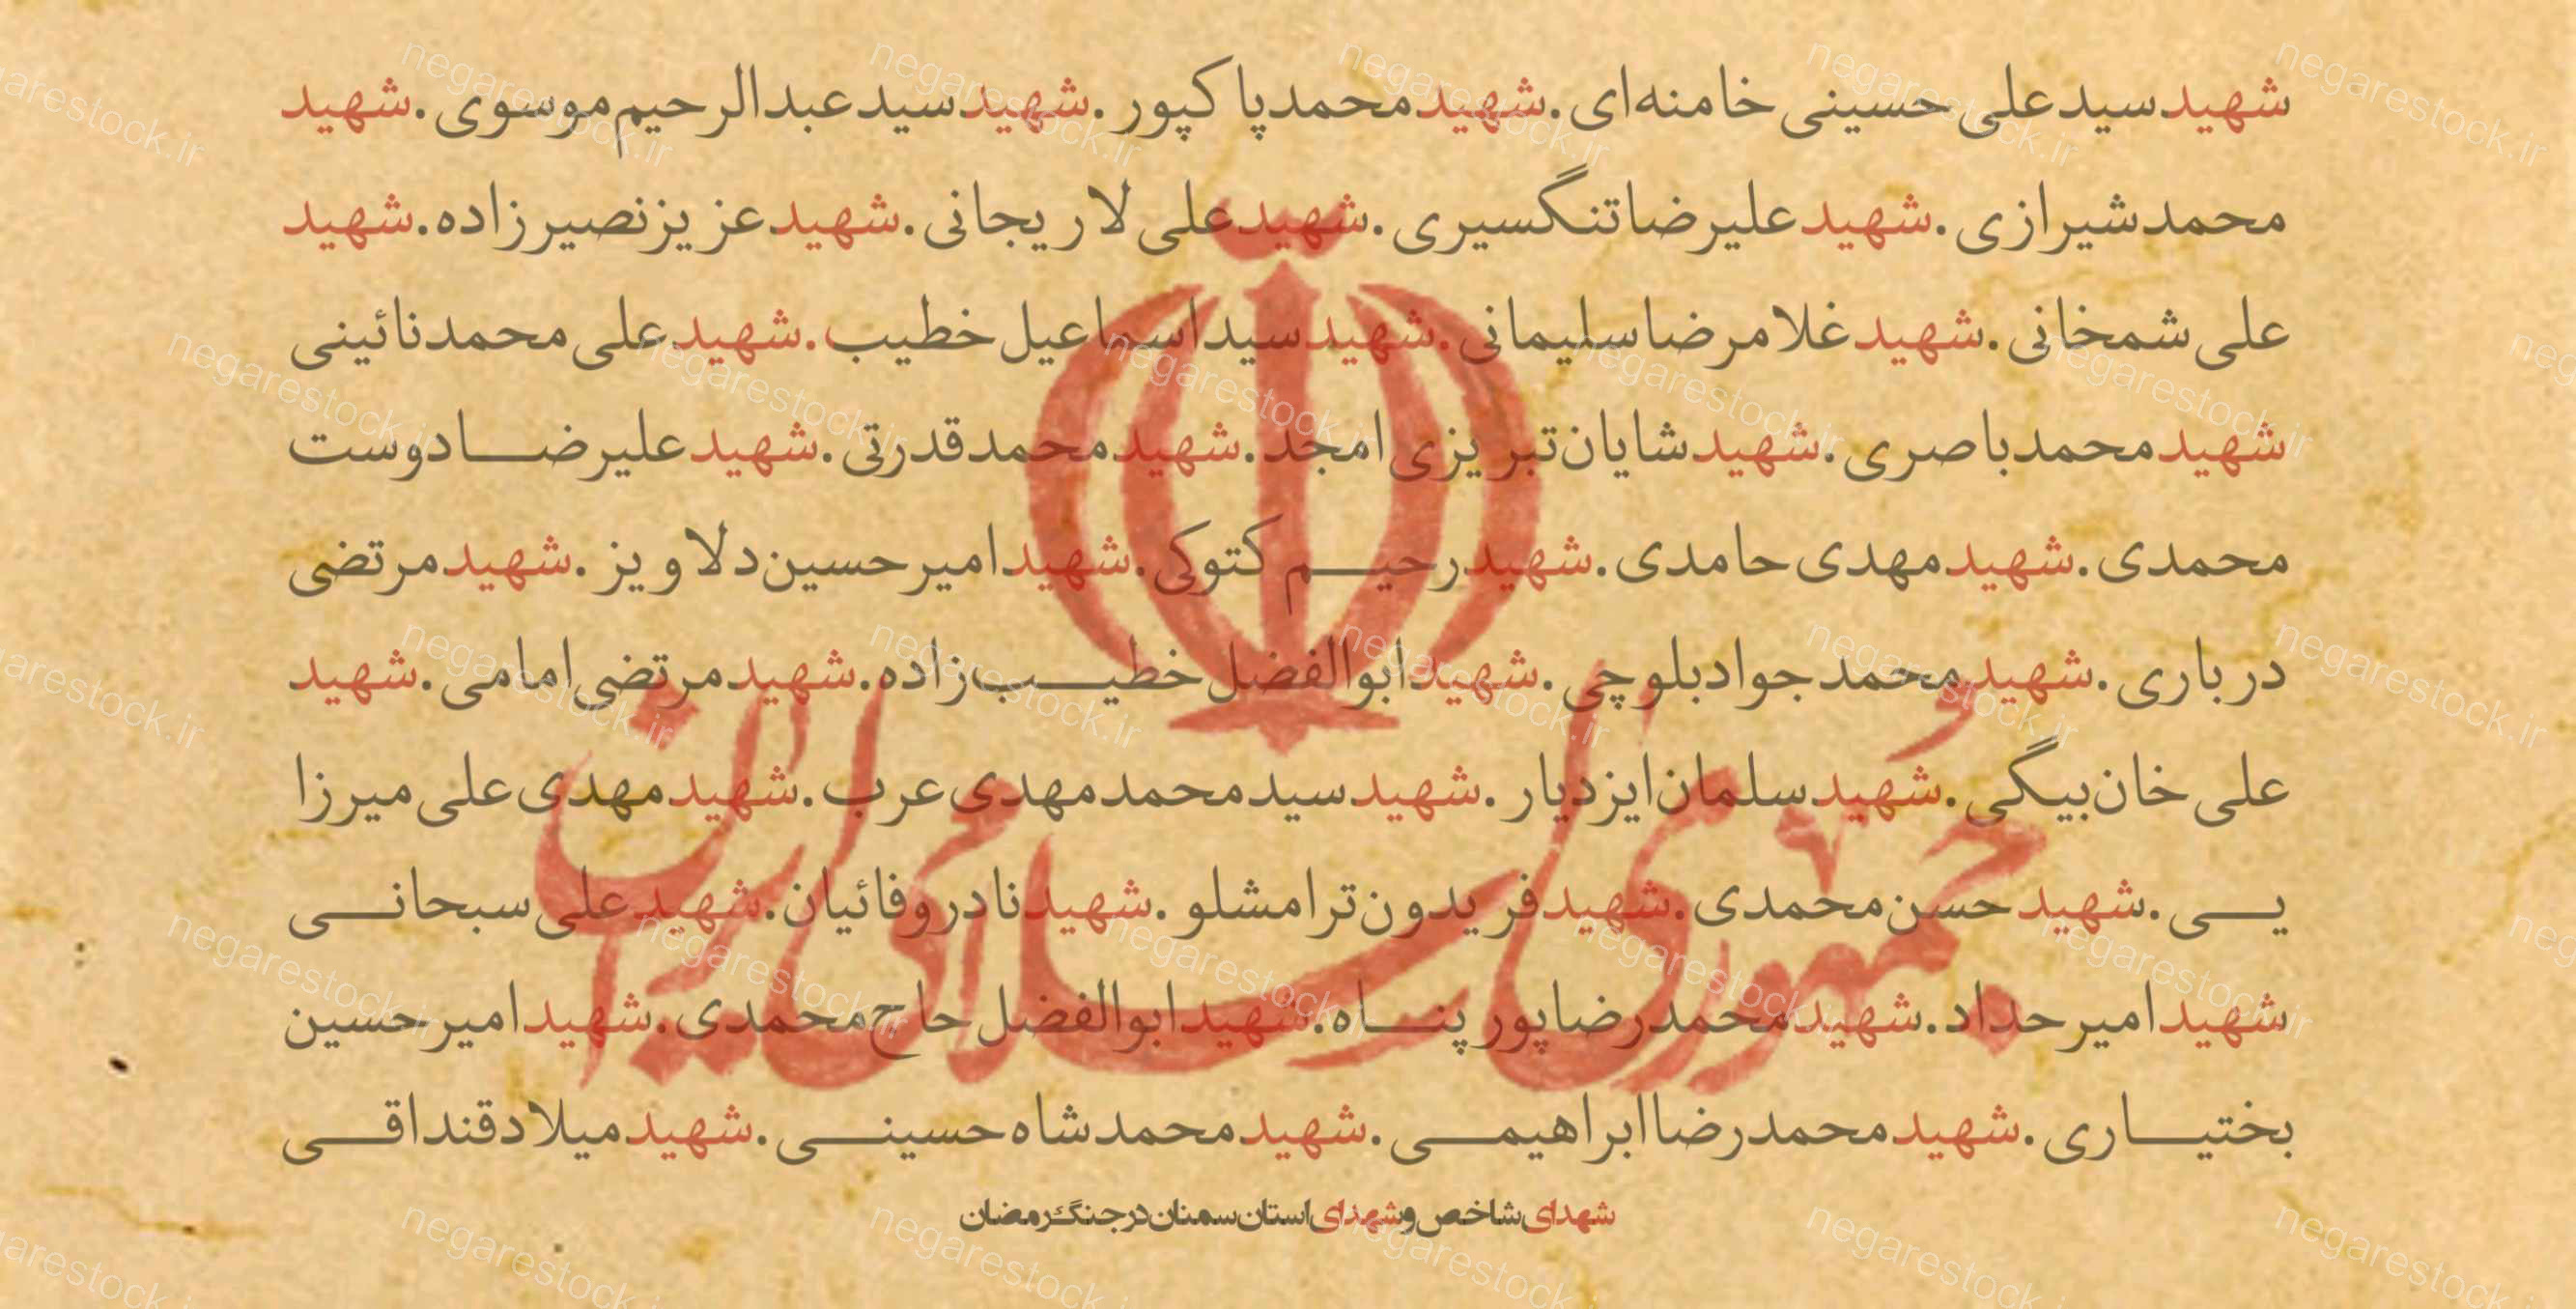 شهید سید علی حسینی خامنه‌ای. شهید محمد پاکپور. شهید سید عبدالرحیم موسوی. شهید
محمد شیرازی. شهید علیرضا تنگسیری. شهید علی لاریجانی. شهید عزیز نصیرزاده. شهید
علی شمخانی. شهید غلامرضا سلیمانی. شهید سید اسماعیل خطیب. شهید علی محمد نائینی
شهید محمد باصری. شهید شایان تبریزی امجد. شهید محمد قدرتی. شهید علیرضا دوست
محمدی. شهید مهدی حامدی. شهید رحیم کتوکی. شهید امیرحسین دلاویز. شهید مرتضی
درباری. شهید محمد جواد بلوچی. شهید ابوالفضل خطیب‌زاده. شهید مرتضی امامی. شهید
علی خان‌بیگی. شهید سلمان ایزدیار. شهید سید محمد مهدی عرب. شهید مهدی علی میرزا
یی. شهید حسن محمدی. شهید فریدون ترامشلو. شهید نادر وفائیان. شهید علی سبحانی
شهید امیر حداد. شهید محمدرضا پورپناه. شهید ابوالفضل حاج محمدی. شهید امیرحسین
بختیاری. شهید محمدرضا ابراهیمی. شهید محمد شاه حسینی. شهید میلاد قنداقی
جمهوری اسلامی ایران
شهدای شاخص و شهدای استان سمنان در جنگ رمضان
negarestock.ir